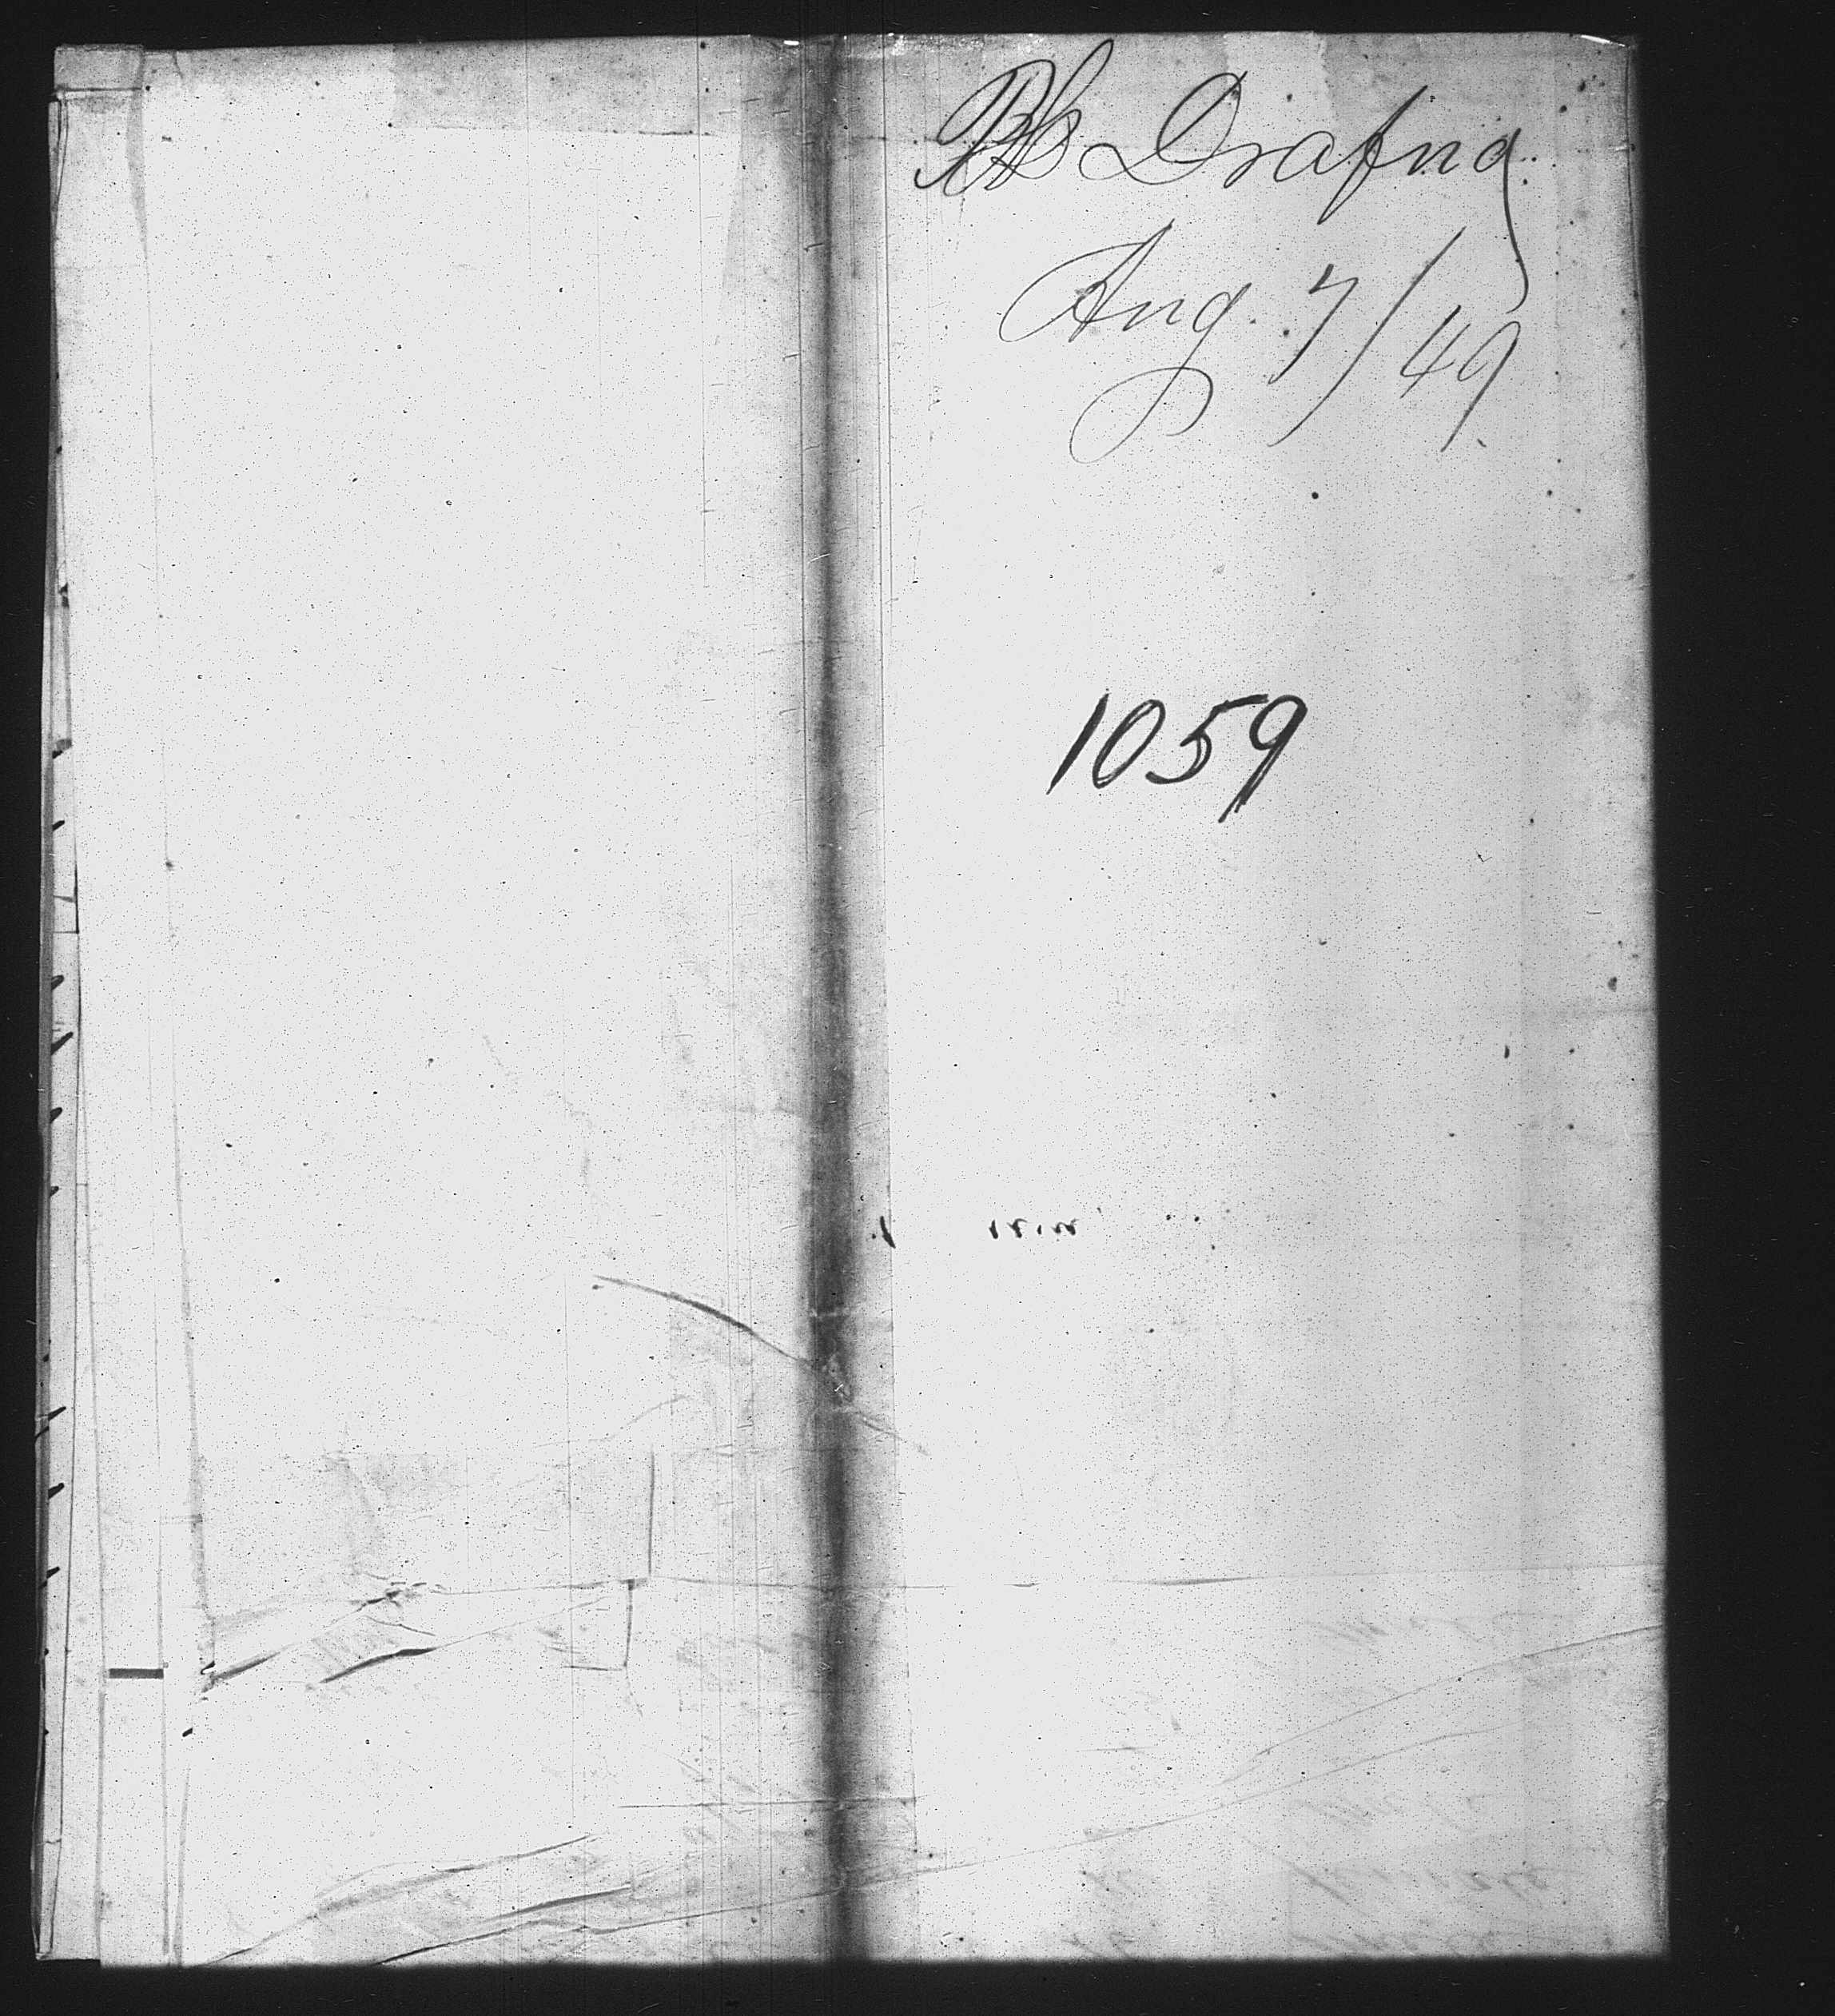 Bk Drafna
Aug. 7/49
1059